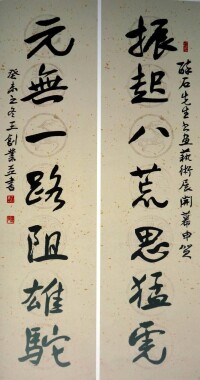 石先生藝術展開幕申賀
振起八荒思猛虎
元無一路阻雄駝
癸未之冬王創業並書